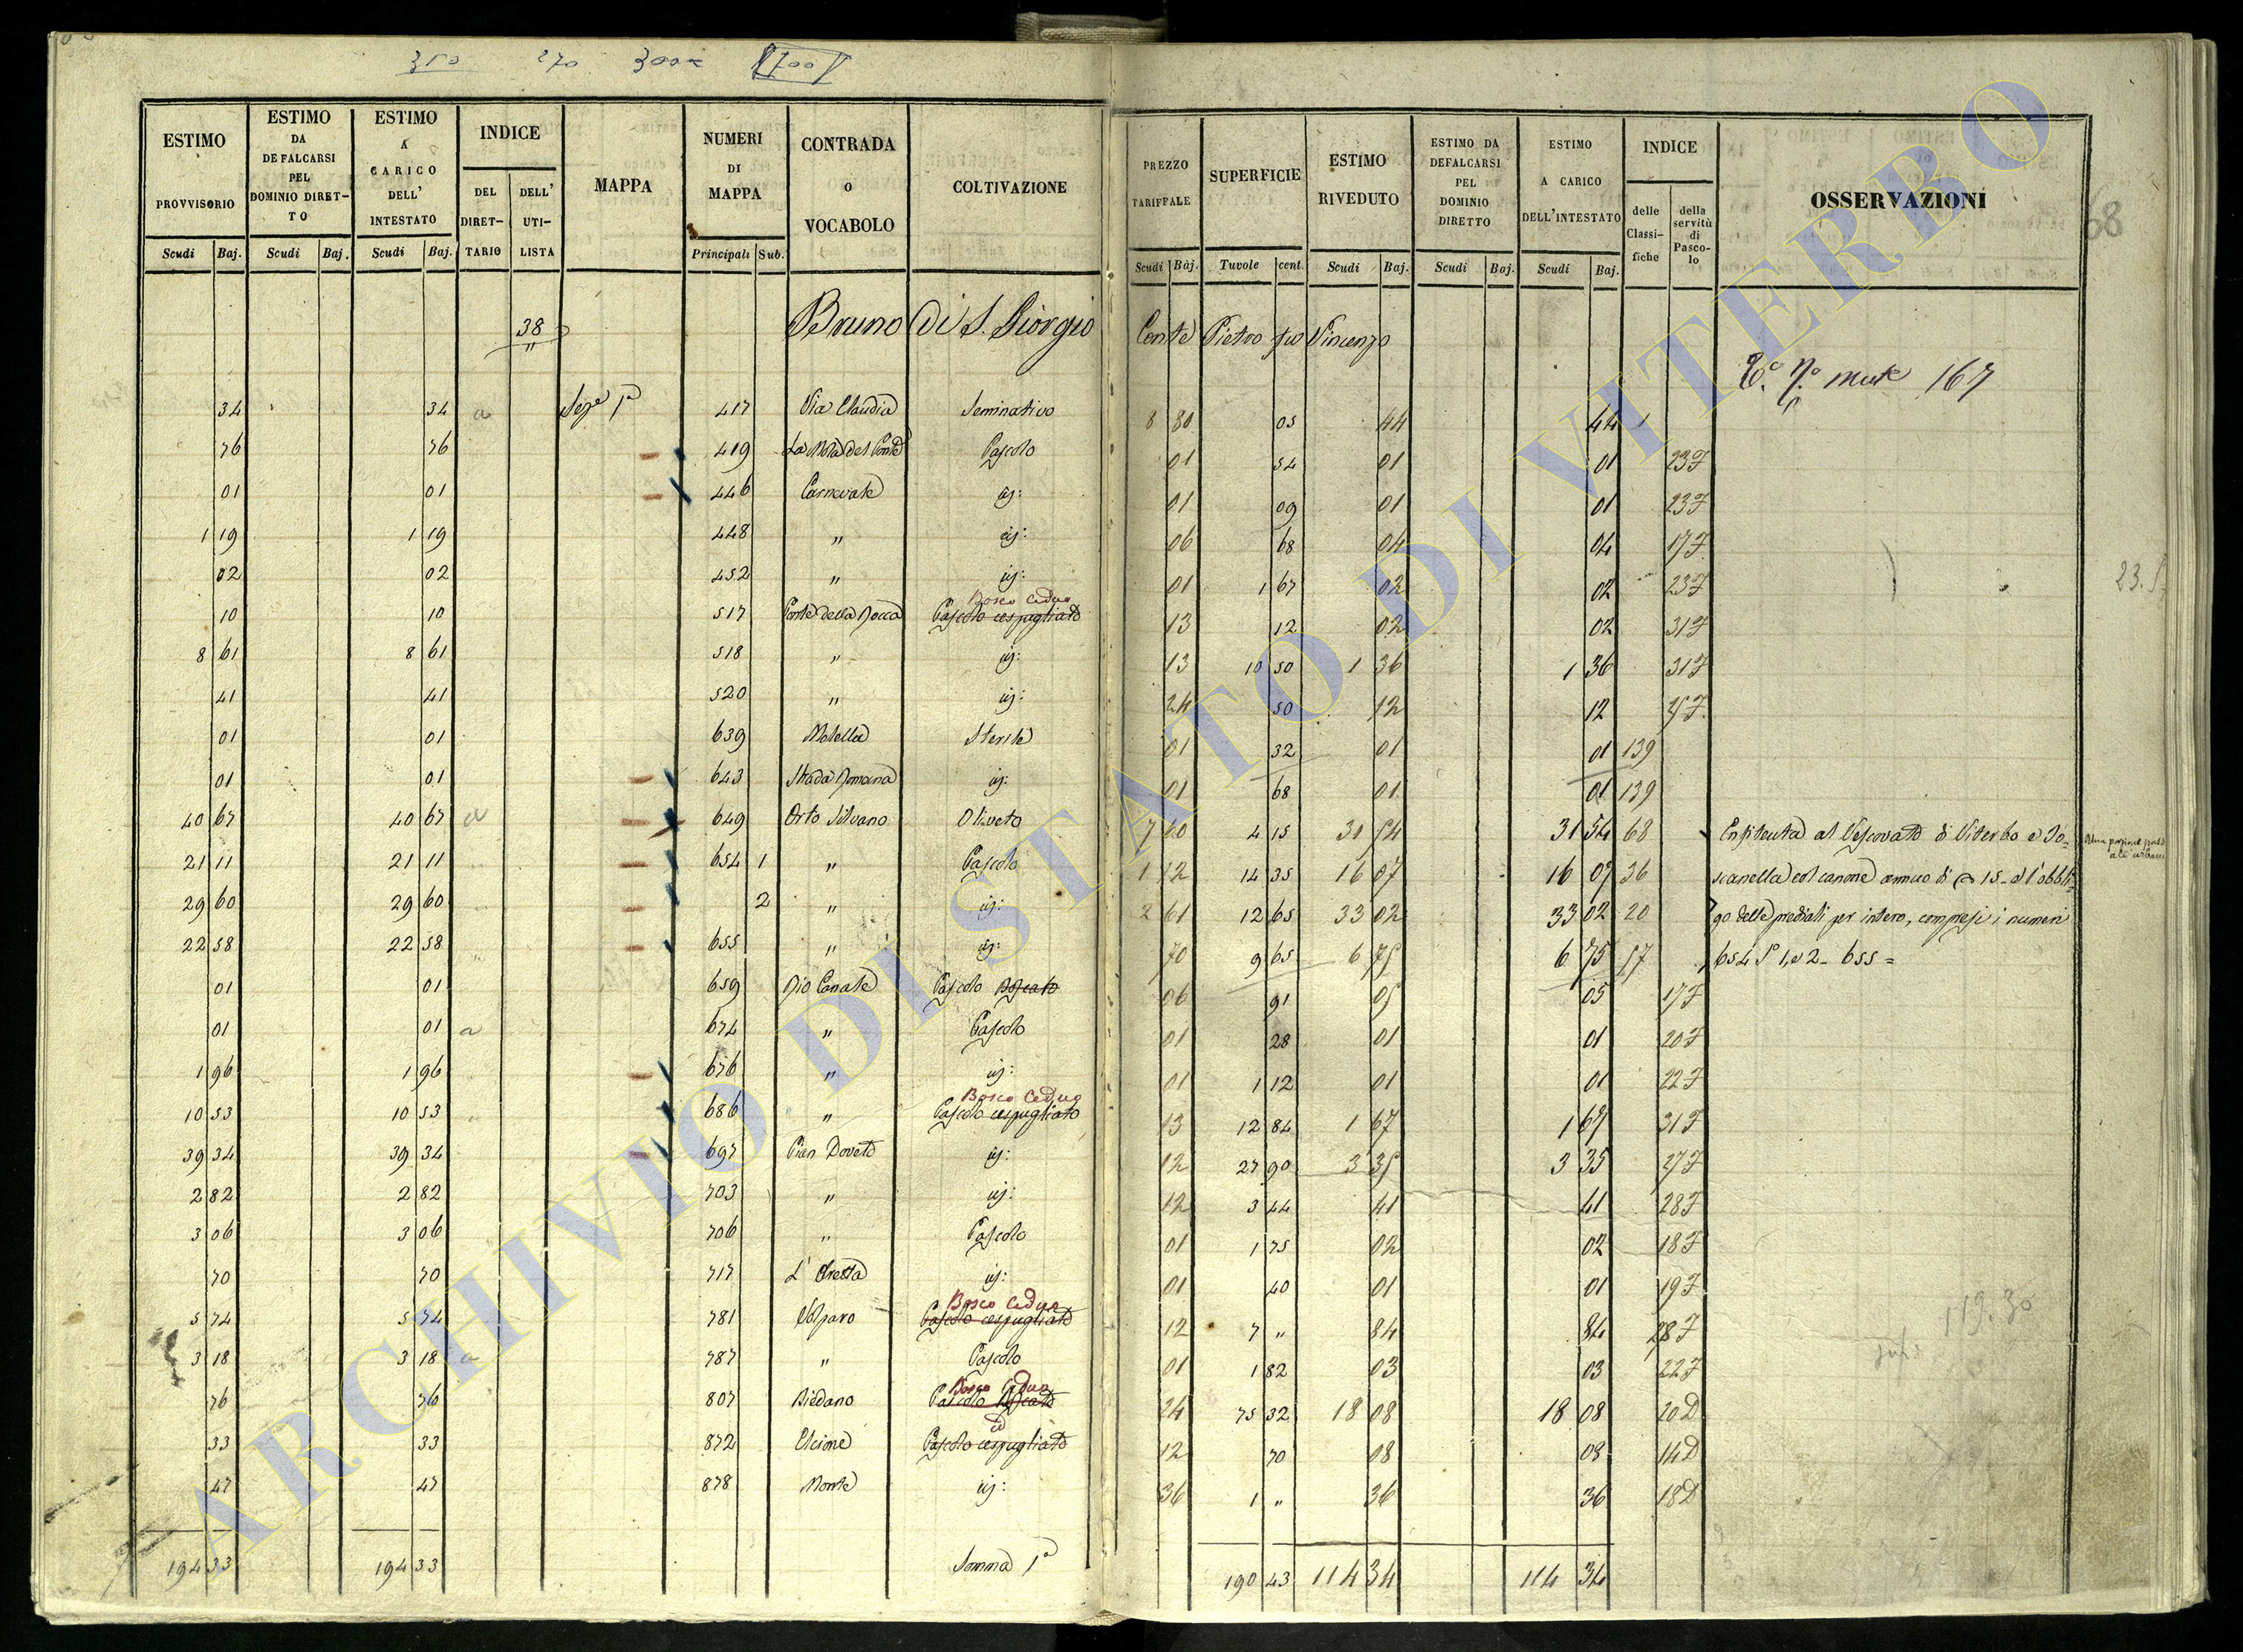 350 270 300 1700
ESTIMO PROVVISORIO | ESTIMO DA DEFALCARSI PEL DOMINIO DIRETTO | ESTIMO A CARICO DELL' INTESTATO | INDICE DEL DIRETTARIO | DELL' UTILISTA | MAPPA | NUMERI DI MAPPA | CONTRADA O VOCABOLO | COLTIVAZIONE | PREZZO TARIFFALE | SUPERFICIE | ESTIMO RIVEDUTO | ESTIMO DA DEFALCARSI PEL DOMINIO DIRETTO | ESTIMO A CARICO DELL'INTESTATO | INDICE delle Classifiche | della servitù di Pascolo | OSSERVAZIONI
Scudi Baj. Scudi Baj. Scudi Baj. Principali Sub. Scudi Baj. Tavole cent. Scudi Baj. Scudi Baj. Scudi Baj.
68
38 Bruno di S. Giorgio Conte Pietro fu Vincenzo
167
34 34 a Seze 1ª 417 Via Claudia Seminativo 8 80 05 44 44 1
76 76 419 La Mola del Ponte Pascolo 01 54 01 01 23F
01 01 446 Carnevale id: 01 09 01 01 23F
1 19 1 19 448 " id: 06 68 04 04 17F
02 02 452 " id: 01 1 67 02 02 23F
Bosco Ceduo
10 10 517 Ponte della Rocca Pascolo cespugliato 13 12 02 02 31F
8 61 8 61 518 " id: 13 10 50 1 36 1 36 31F
41 41 520 " id: 24 50 12 12
01 01 639 Molella Sterile 01 32 01 01 139
01 01 643 Strada Romana id: 01 68 01 01 139
40 67 40 67 a 649 Orto Silvano Oliveto 7 60 4 15 31 54 31 54 68 Enfiteuta al Vescovato di Viterbo e To=
21 11 21 11 654 1 " Pascolo 1 12 14 35 16 07 16 07 36 scanella col canone annuo di 15 e l'obbli=
29 60 29 60 2 " id: 2 61 12 65 33 02 33 02 20 go delle prediali per intero, compresi i numeri
22 58 22 58 655 " id: 70 9 65 6 75 6 75 57 654 S 1, e 2 - 655 =
01 01 659 Rio Canale Pascolo Boscato 06 91 05 05 17F
01 01 a 674 " Pascolo 01 28 01 01 20F
1 96 1 96 676 " id: 01 1 12 01 01 22F
Bosco Ceduo
10 53 10 53 686 " Pascolo cespugliato 13 12 84 1 67 1 67 31F
39 34 39 34 697 Pian Doveto id: 12 27 90 3 35 3 35 27F
2 82 2 82 703 " id: 12 3 44 41 41 28F
3 06 3 06 706 " Pascolo 01 1 75 02 02 18F
70 70 717 id: 01 40 01 01 19F
Bosco Ceduo
5 74 5 74 781 Volparo Pascolo cespugliato 12 7 " 84 84 28F
119.30
3 18 3 18 a 787 " Pascolo 01 1 82 03 03 22F
Bosco Ceduo
76 76 807 Biedano Pascolo Boscato 24 75 32 18 08 18 08 20D
id
33 33 872 Elcione Pascolo cespugliato 12 70 08 08 14D
47 47 878 Monte id: 36 1 " 36 36 18D
194 33 194 33 Somma 1ª 190 43 114 34 114 34
ARCHIVIO DI STATO DI VITERBO